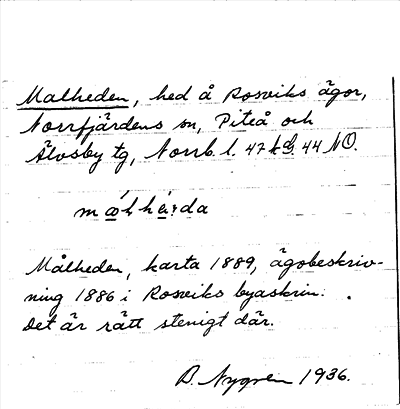 Malheden, hed å Rosviks ägor,
Norrfjärdens sn, Piteå och
Älvsby tg, Norrb. l. 47 44 NO.
Målheden, karta 1889, ägobeskriv-
ning 1886 i Rosviks byaskrin.
Det är rätt stenigt där.
B. Nygren 1936.